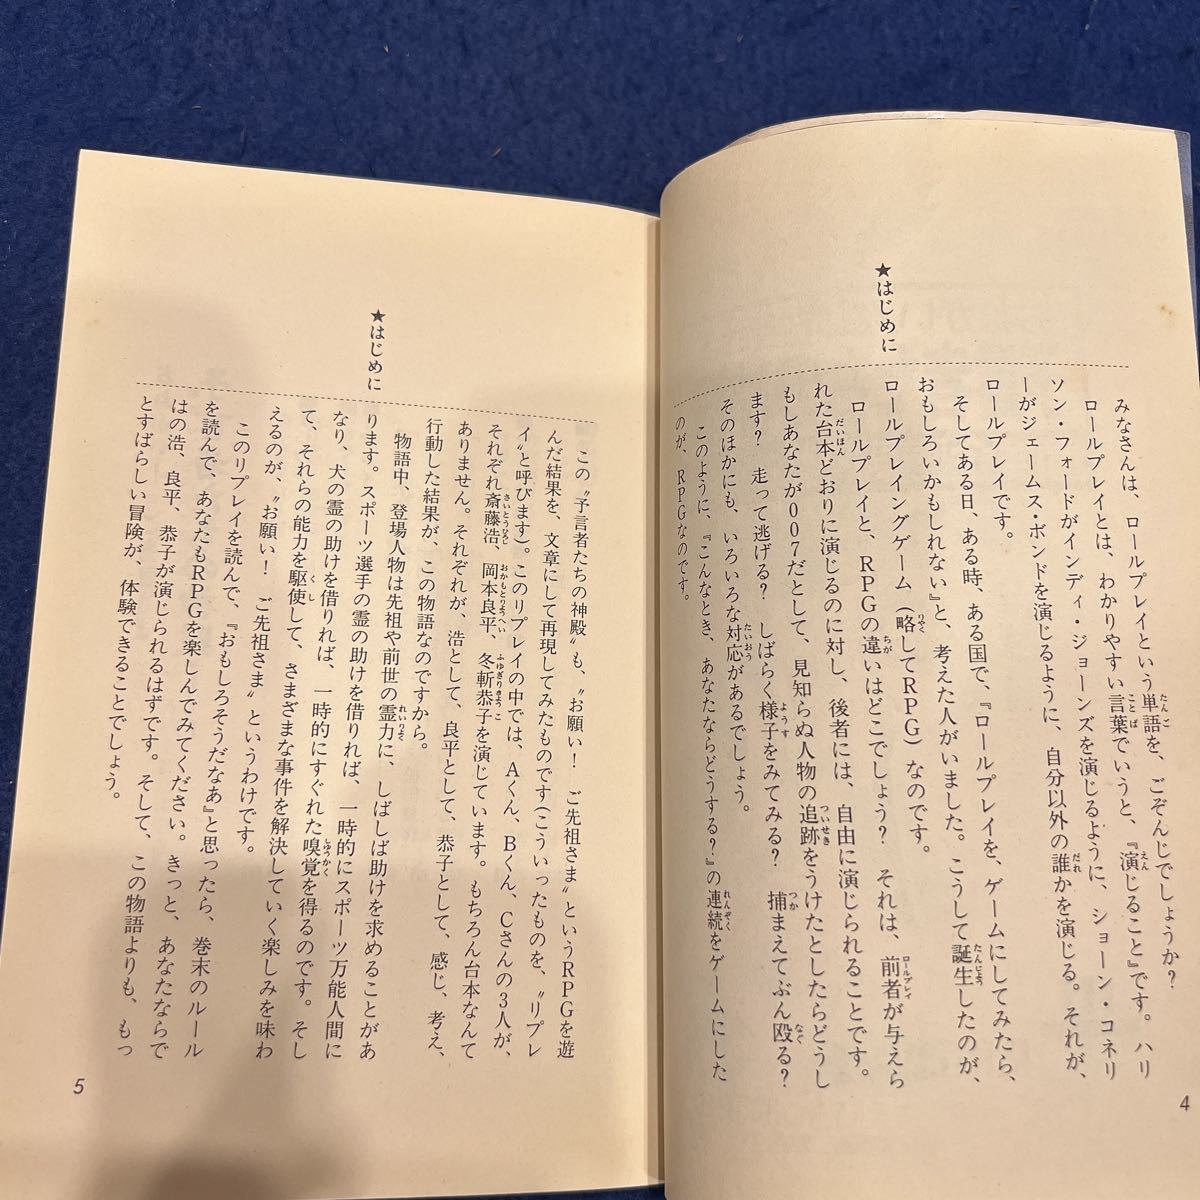 ★はじめに
みなさんは、ロールプレイという単語を、ごぞんじでしょうか？
ロールプレイとは、わかりやすい言葉でいうと、『演じること』です。ハリ
ソン・フォードがインディ・ジョーンズを演じるように、ショーン・コネリ
ーがジェームス・ボンドを演じるように、自分以外の誰かを演じる。それが、
ロールプレイです。
そしてある日、ある時、ある国で、『ロールプレイを、ゲームにしてみたら、
おもしろいかもしれない』と、考えた人がいました。こうして誕生したのが、
ロールプレイングゲーム（略してRPG）なのです。
ロールプレイと、RPGの違いはどこでしょう？　それは、前者が与えら
れた台本どおりに演じるのに対し、後者には、自由に演じられることです。
もしあなたが007だとして、見知らぬ人物の追跡をうけたとしたらどうし
ます？　走って逃げる？　しばらく様子をみてみる？　捕まえてぶん殴る？
そのほかにも、いろいろな対応があるでしょう。
このように、『こんなとき、あなたならどうする？』の連続をゲームにした
のが、RPGなのです。
4
★はじめに
この〝予言者たちの神殿〟も、〝お願い！　ご先祖さま〟というRPGを遊
んだ結果を、文章にして再現してみたものです（こういったものを、〝リプレ
イ〟と呼びます）。このリプレイの中では、Aくん、Bくん、Cさんの3人が、
それぞれ斎藤浩、岡本良平、冬斬恭子を演じています。もちろん台本なんて
ありません。それぞれが、浩として、良平として、恭子として、感じ、考え、
行動した結果が、この物語なのですから。
物語中、登場人物は先祖や前世の霊力に、しばしば助けを求めることがあ
ります。スポーツ選手の霊の助けを借りれば、一時的にスポーツ万能人間に
なり、犬の霊の助けを借りれば、一時的にすぐれた嗅覚を得るのです。そし
て、それらの能力を駆使して、さまざまな事件を解決していく楽しみを味わ
えるのが、〝お願い！　ご先祖さま〟というわけです。
このリプレイを読んで、『おもしろそうだなあ』と思ったら、巻末のルール
を読んで、あなたもRPGを楽しんでみてください。きっと、あなたならで
はの浩、良平、恭子が演じられるはずです。そして、この物語よりも、もっ
とすばらしい冒険が、体験できることでしょう。
5